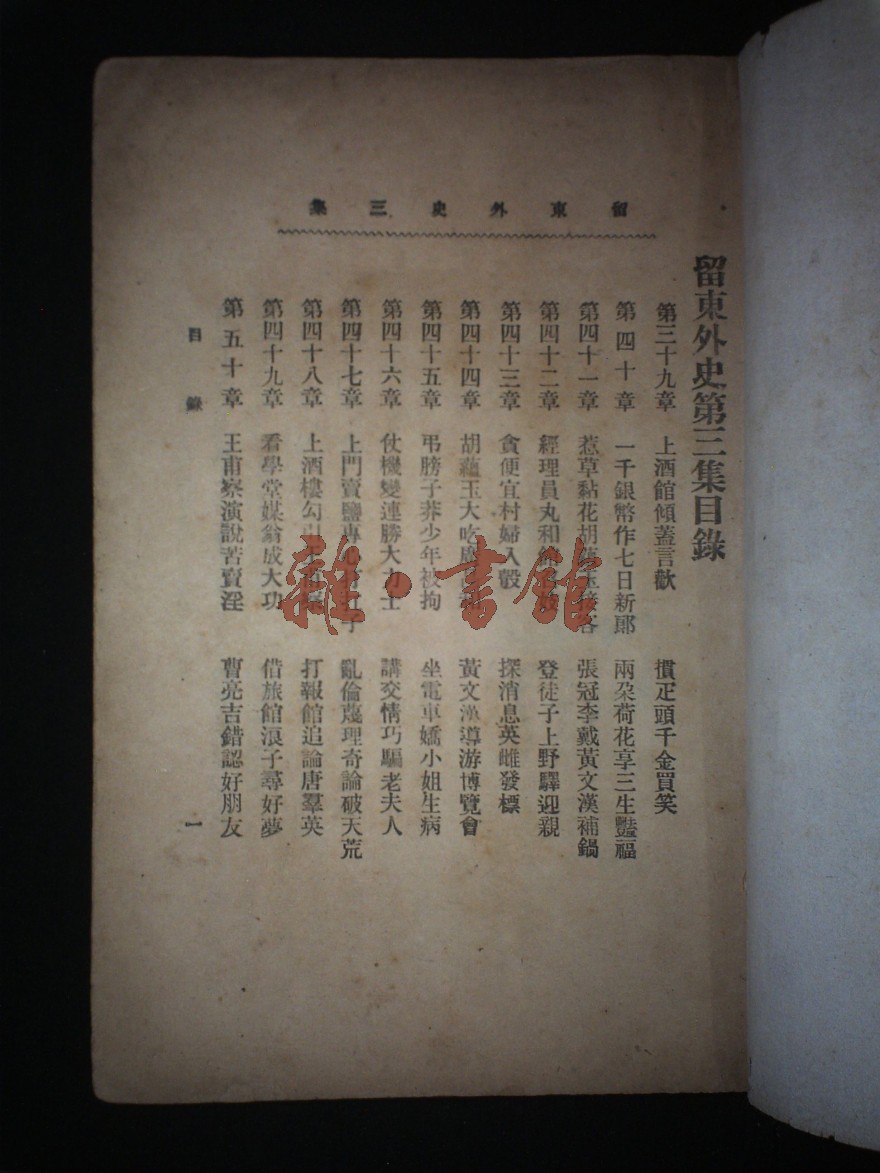 留東外史三集
留東外史第三集目錄
第三十九章 上酒館傾蓋言歡 慣疋頭千金買笑
第四十章 一千銀幣作七日新郎 兩朶荷花享三生豔福
第四十一章 惹草黏花胡 客 張冠李戴黃文漢補鍋
第四十二章 經理員丸和 登徒子上野驛迎親
第四十三章 貪便宜村婦入彀 探消息英雌發標
第四十四章 胡蘊玉大吃 黃文漢導游博覽會
第四十五章 弔膀子莽少年被拘 坐電車嬌小姐生病
第四十六章 仗機變連勝大力士 講交情巧騙老夫人
第四十七章 上門賣鹽專 子 亂倫蔑理奇論破天荒
第四十八章 上酒樓勾引 打報館追論唐羣英
第四十九章 看學堂媒翁成大功 借旅館浪子尋好夢
第五十章 王甫察演說苦賣淫 曹亮吉錯認好朋友
目錄
一
雜·書館